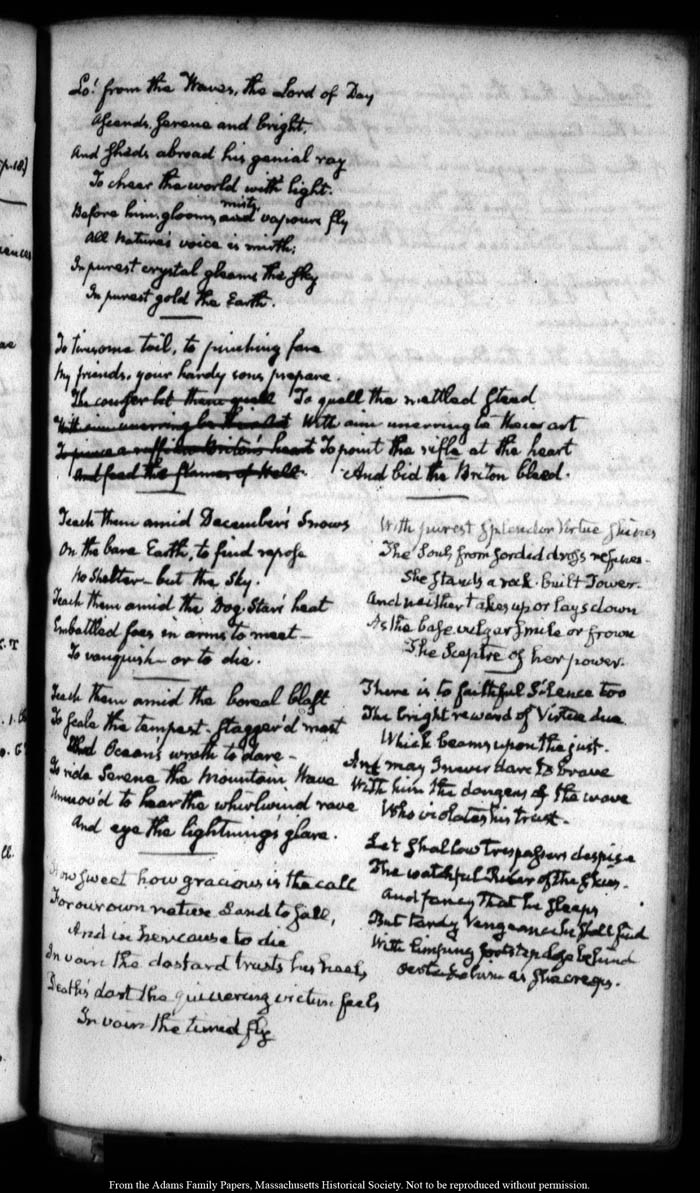 Lo! from the Waves, the Lord of Day
Ascends, serene and bright,
And sheds abroad his genial ray
To cheer the world with light.
Before him, gloomy, misty, and vapours fly
All Nature's voice is mirth;
In purest crystal gleams the sky
In purest gold the Earth.
To tiresome toil, to pinching fare
My friends, your hardy sons prepare.
The courser let them quell To quell the mettled steed
With aim unerring be their Art With aim unerring be their art
To pierce a ruffian Briton's heart To point the rifle at the heart
And feed the flames of Hell. And bid the Briton bleed.
Teach them amid December's Snows
On the bare Earth, to find repose
No Shelter but the Sky.
Teach them amid the Dog Stars' heat
Embattled foes in arms to meet
To vanquish or to die.
Teach them amid the boreal blast
To scale the tempest-stagger'd mast
And Ocean's wrath to dare
To ride serene the Mountain Wave
Unmov'd to hear the whirlwind rave
And eye the lightning's glare.
How sweet how gracious is the call
For our own native Land to fall,
And in her cause to die
In vain the dastard trusts his heels
Death's dart the quivering victim feels
In vain the timid fly
With purest splendor Virtue shines
The Soul from sordid dross refines.
She stands a rock-built Tower.
And neither takes up or lays down
As the base vulgar smile or frown
The Sceptre of her power.
There is to faithful Silence too
The bright reward of Virtue due
Which beams upon the just.
And may I never dare to brave
With him the dangers of the wave
Who violates his trust.
Let shallow trespassers despise
The watchful Ruler of the Skies.
And fancy that he sleeps
But tardy Vengeance he shall find
With limping footstep close behind
as she creeps.
From the Adams Family Papers, Massachusetts Historical Society. Not to be reproduced without permission.